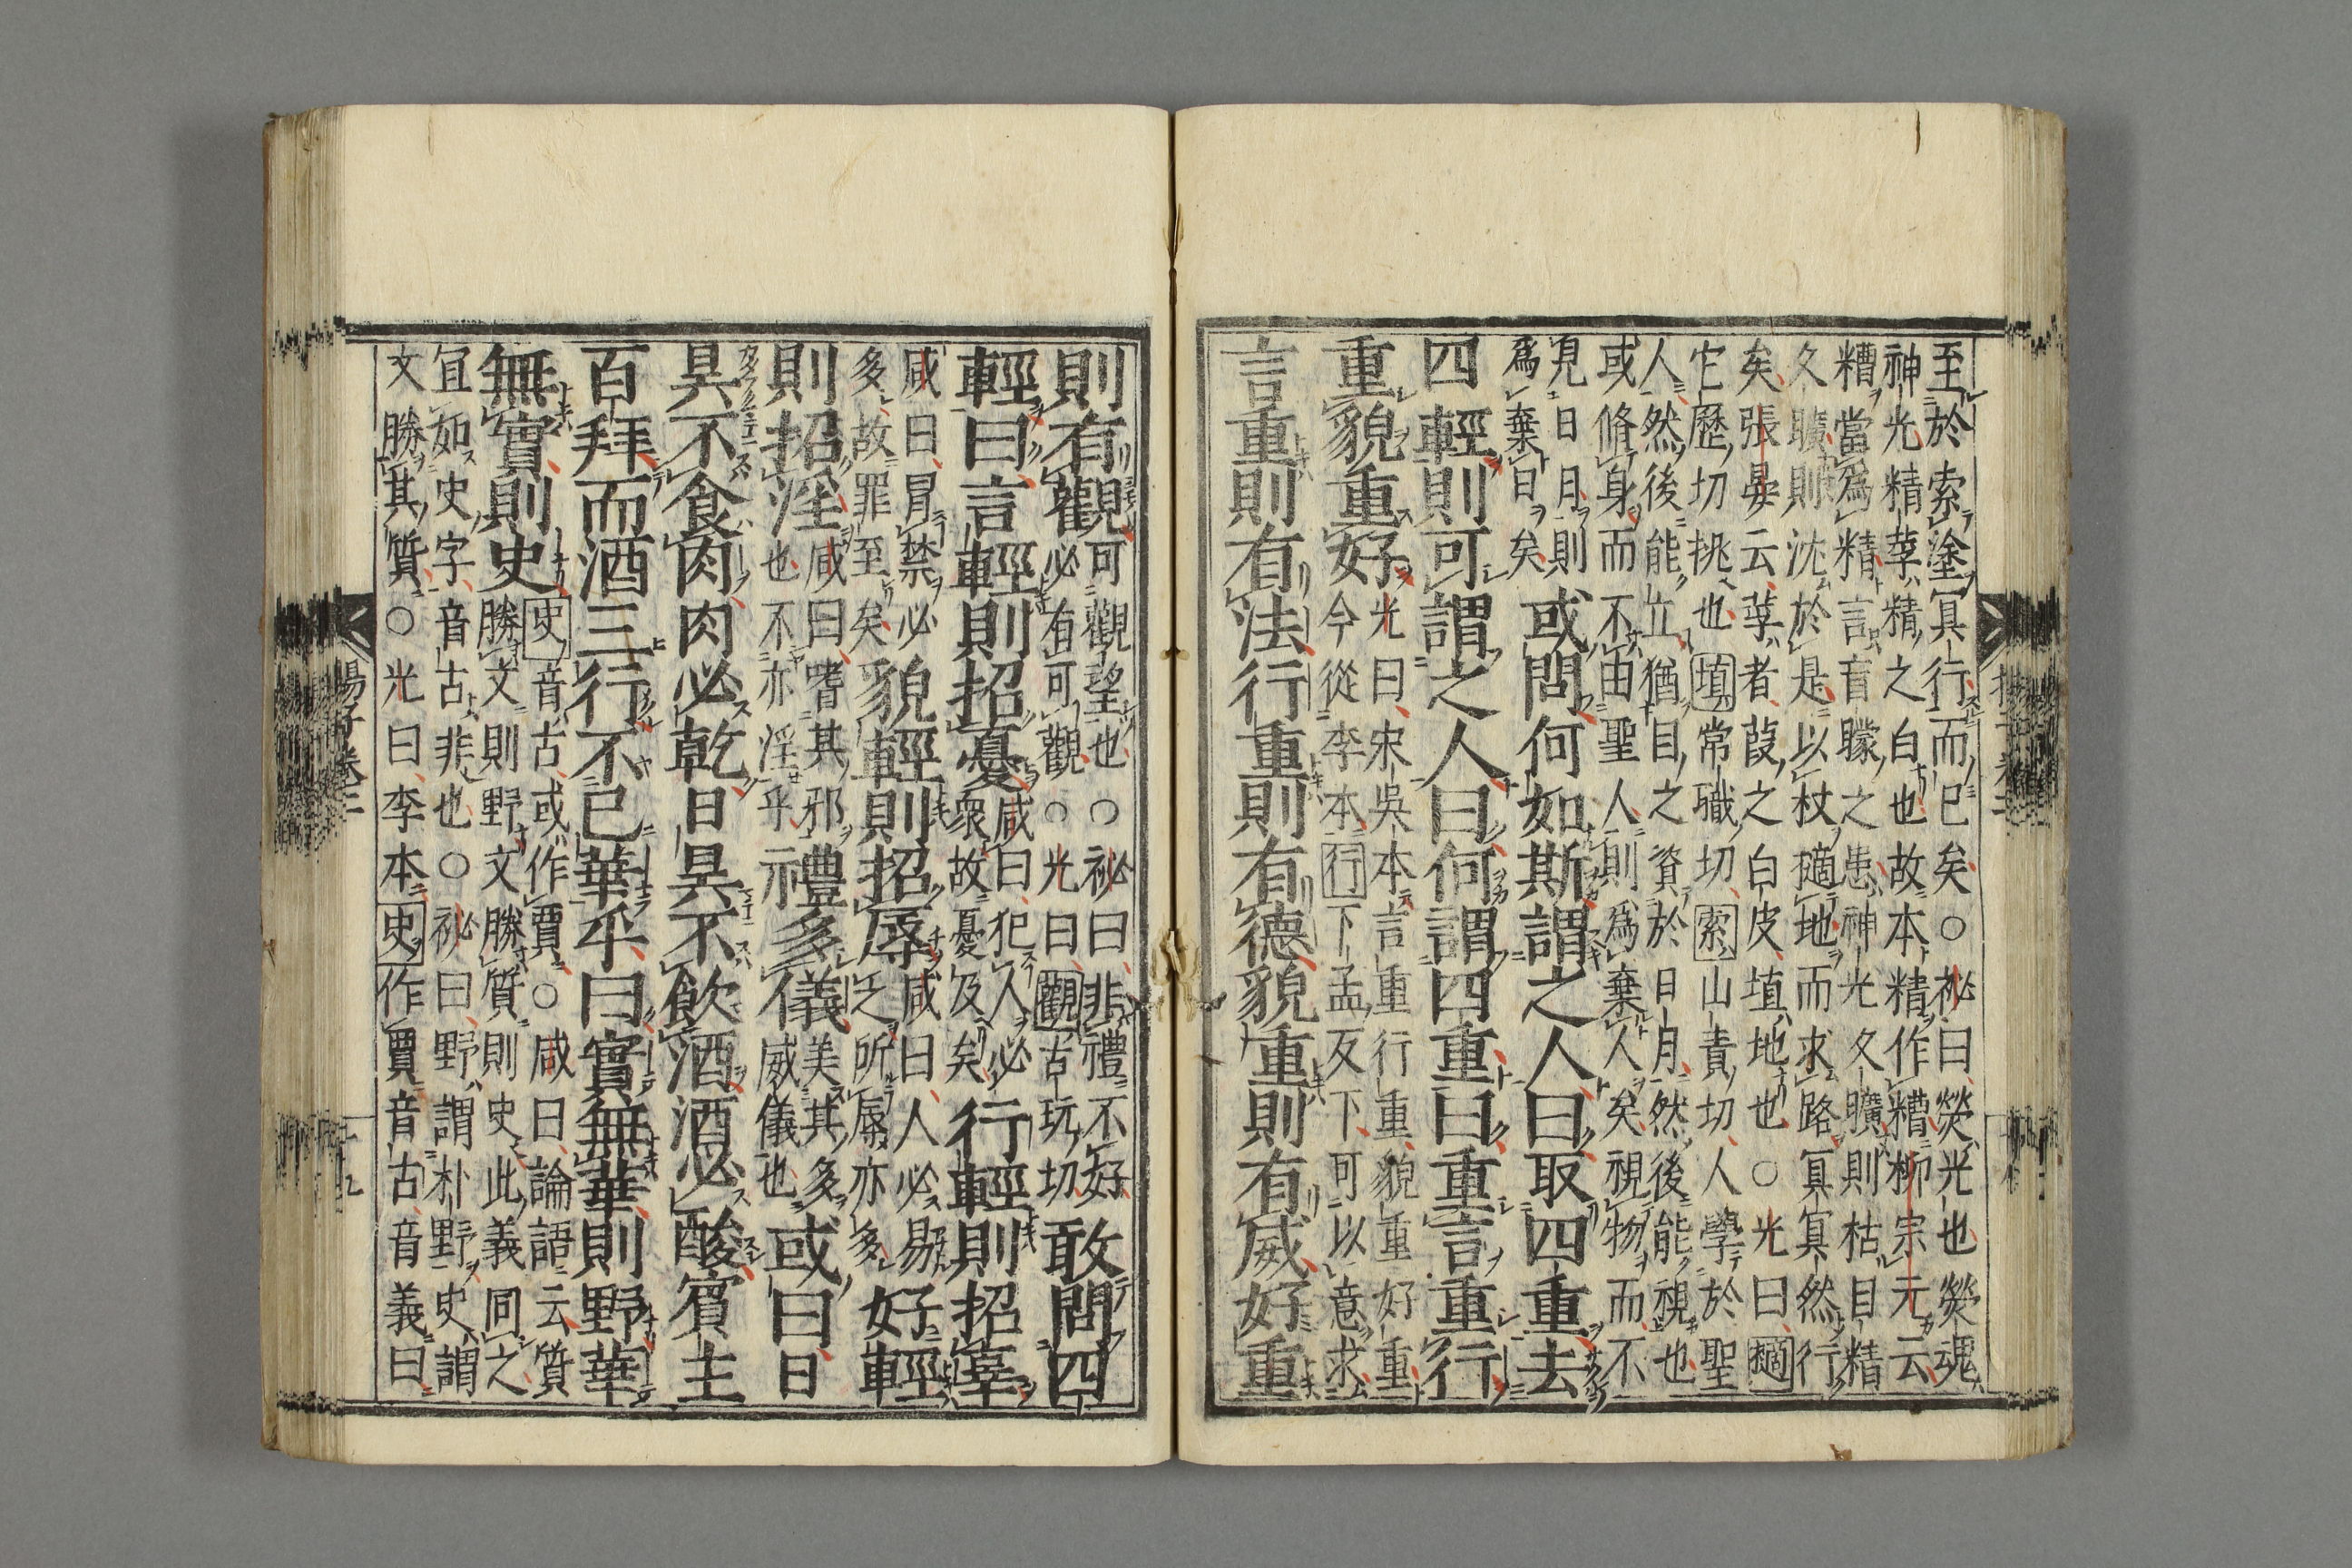 至於索塗冥行而已矣○祕曰熒光也熒魂
神光精莩精之白也故本精作糟柳宗元云
糟當爲精言盲矇之患神光久曠則枯目精
久曠則沈於是以杖擿地而求路冥冥然行
矣張晏云莩者葭之白皮埴地也○光曰擿
它歷切挑也埴常職切索山責切人學於聖
人然後能立猶目之資於日月然後能視也
或脩身而不由聖人則爲棄人矣視物而不
見日月則
爲棄日矣
或問何如斯謂之人曰取四重去
四輕則可謂之人曰何謂四重曰重言重行
重貌重好
光曰宋吳本言重行重貌重好重
今從李本行下孟反下下可以意求
言重則有法行重則有德貌重則有威好重
則有觀
可觀望也○祕曰非禮不好
必有可觀○光曰觀古玩切
敢問四
輕曰言輕則招憂
咸曰犯人必
衆故憂及矣
行輕則招辜
咸曰冒禁必
多故罪至矣
貌輕則招辱
咸曰人必易
之所辱亦多
好輕
則招淫
咸曰嗜其邪
也不亦淫乎
禮多儀
美其多
威儀也
或曰日
昃不食肉肉必乾日昃不飲酒酒必酸賓主
百拜而酒三行不已華乎曰實無華則野華
無實則史
史音古或作賈○咸曰論語云質
勝文則野文勝質則史此義同之
宜如史字音古非也○祕曰野謂朴野史謂
文勝其質○光曰李本史作賈音古音義曰
楊子卷二
十九